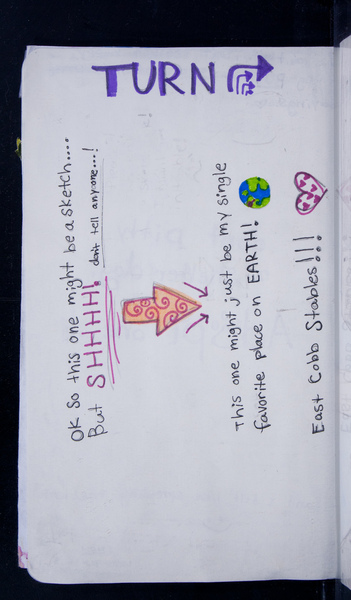 TURN
OK So this one might be a sketch....
But SHHHH! don't tell anyone...!
This one might just be my single
favorite place on EARTH!
East Cobb Stables!!!